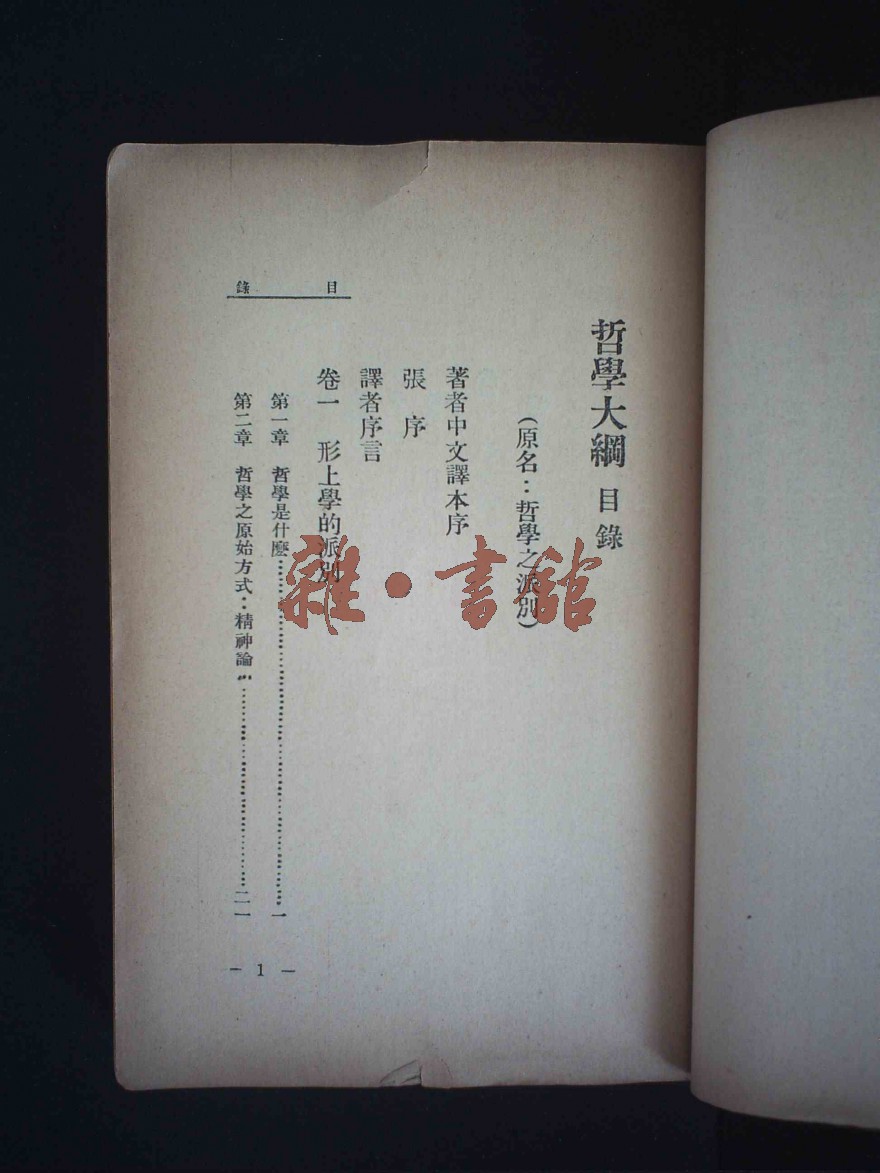 哲學大綱 目錄
(原名：哲學之派別)
著者中文譯本序
張序
譯者序言
卷一 形上學的派別
第一章 哲學是什麽……………………一
第二章 哲學之原始方式：精神論……………………二一
目錄
— 1 —
雜·書館